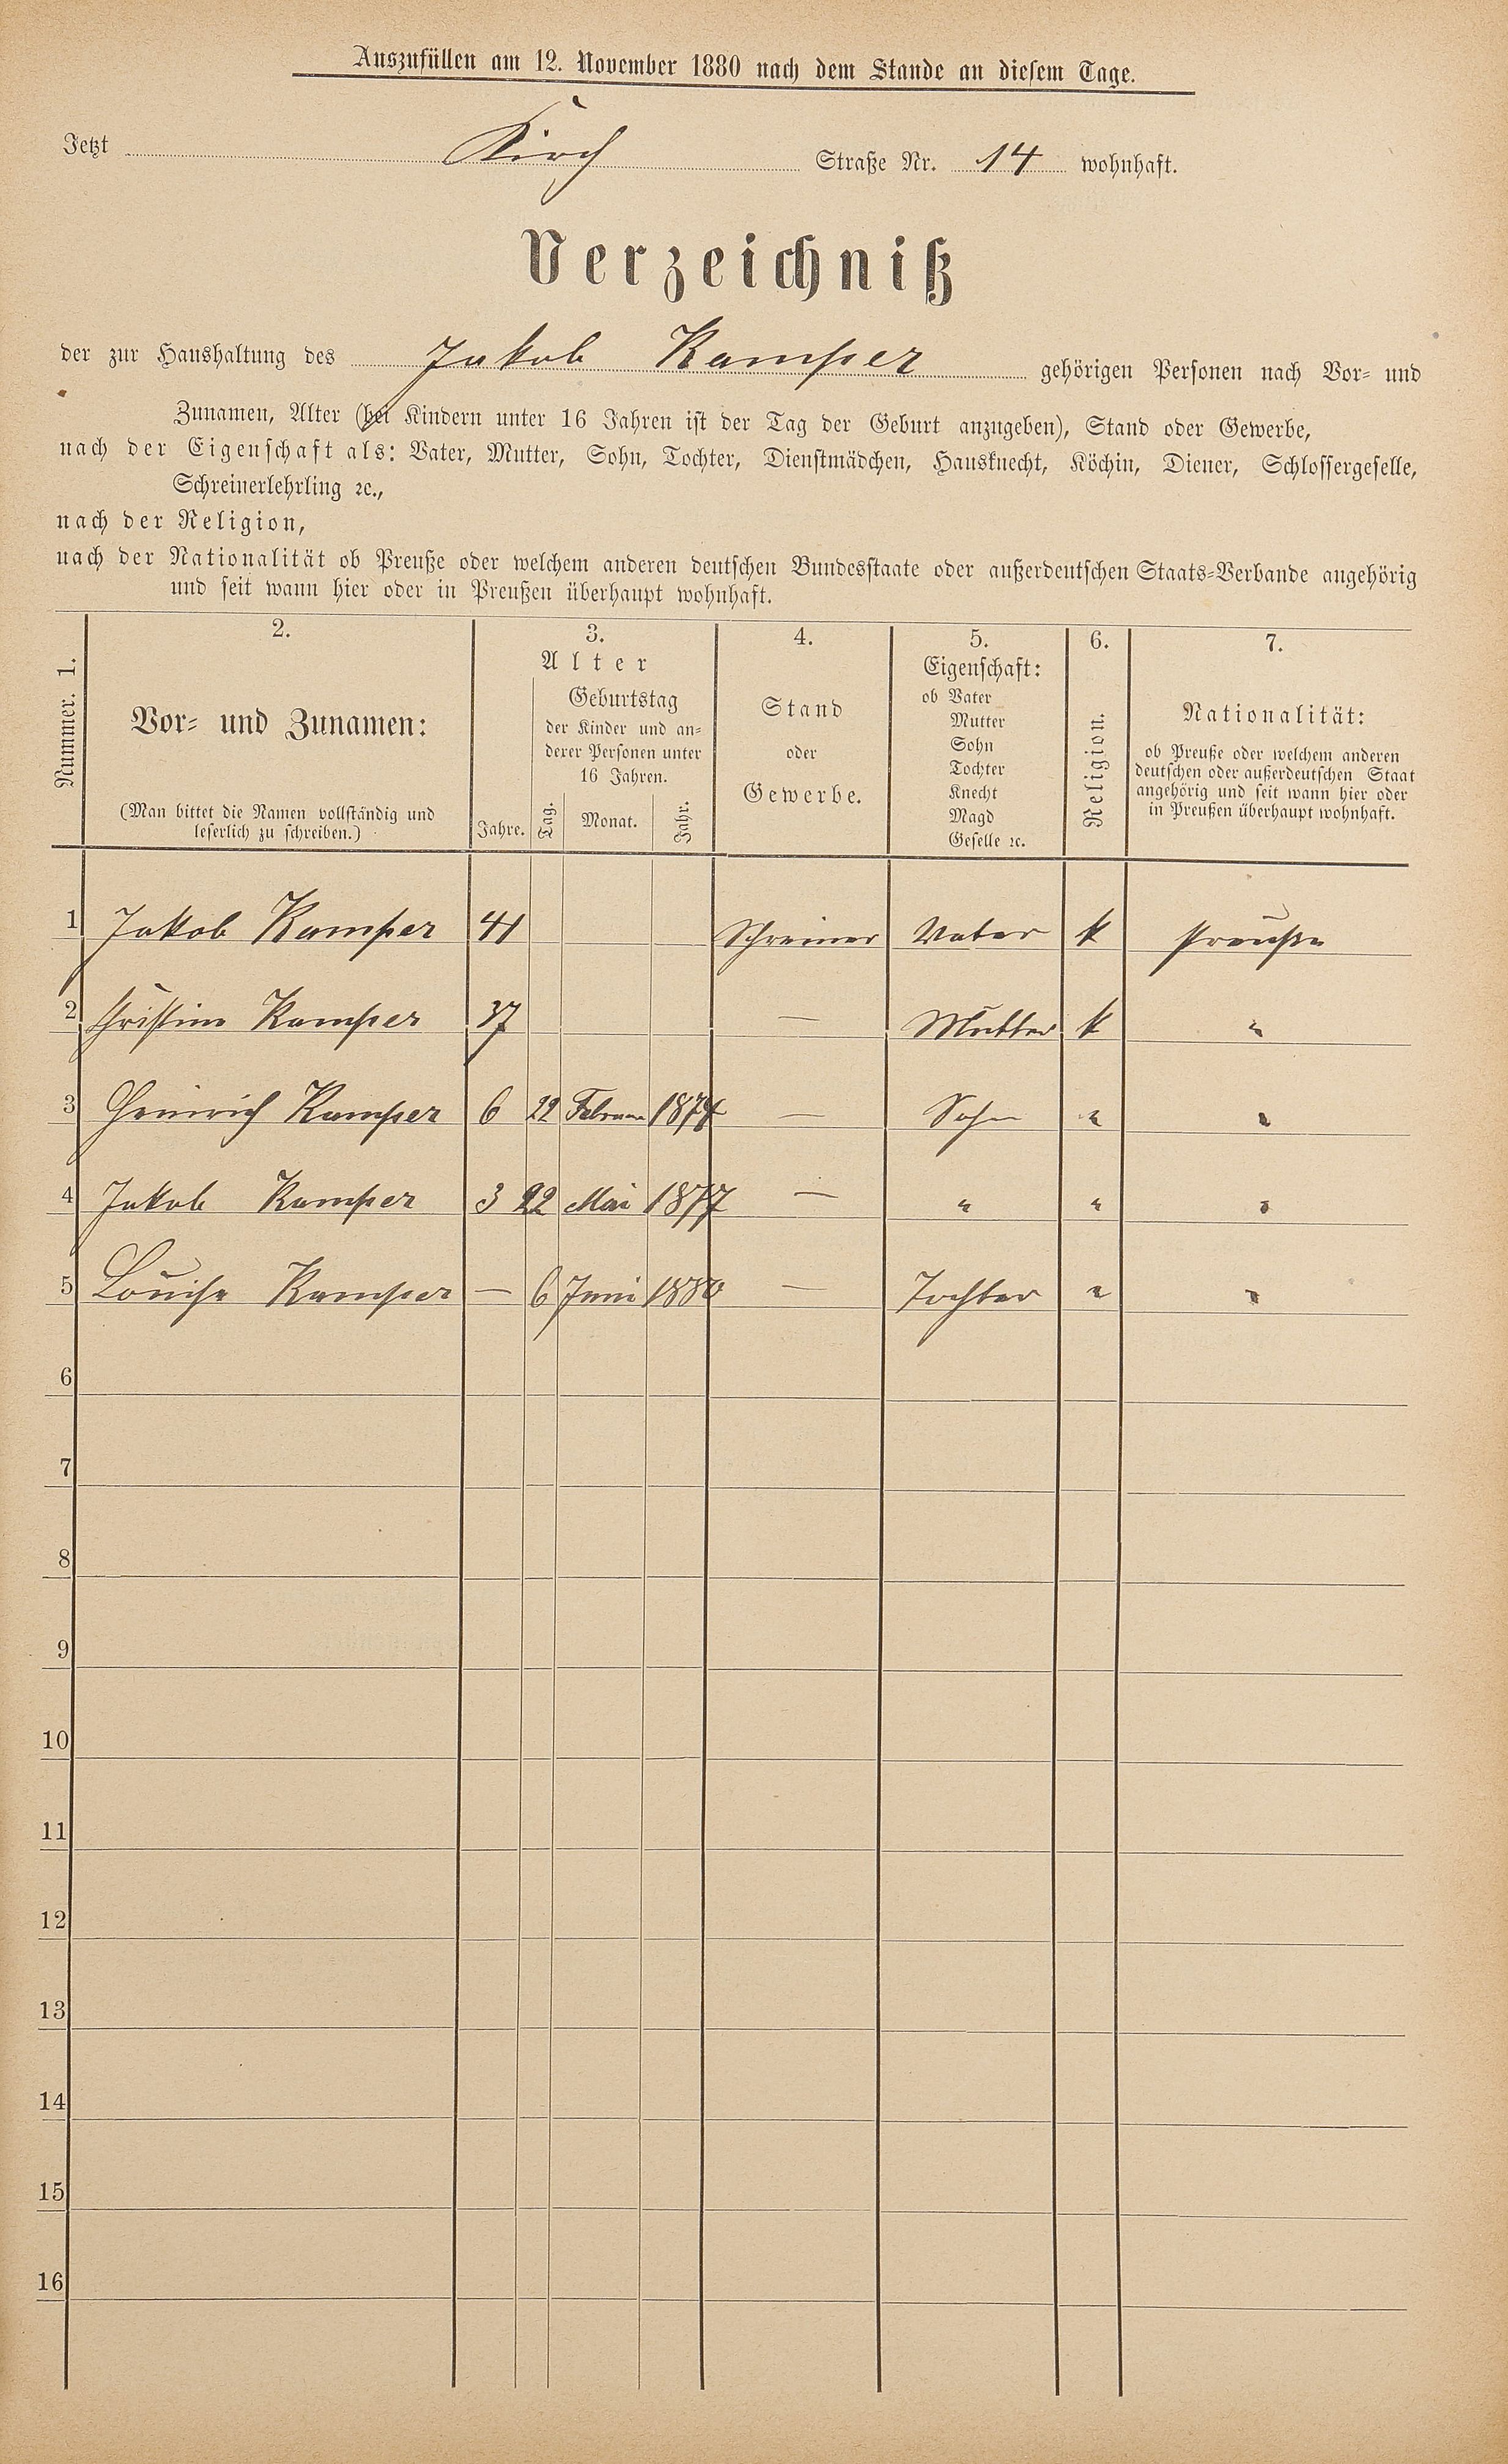 Auszufüllen am 12. November 1880 nach dem Stande an diesem Tage.
Jetzt Kirch Straße Nr. 14 wohnhaft.
Verzeichniß
der zur Haushaltung des Jakob Kamper gehörigen Personen nach Vor- und
Zunamen, Alter (bei Kindern unter 16 Jahren ist der Tag der Geburt anzugeben), Stand oder Gewerbe,
nach der Eigenschaft als: Vater, Mutter, Sohn, Tochter, Dienstmädchen, Hausknecht, Köchin, Diener, Schlossergeselle,
Schreinerlehrling ꝛc.,
nach der Religion,
nach der Nationalität ob Preuße oder welchem anderen deutschen Bundesstaate oder außerdeutschen Staats-Verbande angehörig
und seit wann hier oder in Preußen überhaupt wohnhaft.
Nummer. 1.
2.
Vor- und Zunamen:
(Man bittet die Namen vollständig und
leserlich zu schreiben.)
3.
Alter
Jahre.
Geburtstag
der Kinder und an-
derer Personen unter
16 Jahren.
Tag. Monat. Jahr.
4.
Stand
oder
Gewerbe.
5.
Eigenschaft:
ob Vater
Mutter
Sohn
Tochter
Knecht
Magd
Geselle ꝛc.
6.
Religion.
7.
Nationalität:
ob Preuße oder welchem anderen
deutschen oder außerdeutschen Staat
angehörig und seit wann hier oder
in Preußen überhaupt wohnhaft.
1 Jakob Kamper 41 Schreiner Vater k Preuße
2 Christine Kamper 37 — Mutter k "
3 Heinrich Kamper 6 22 Februar 1874 — Sohn " "
4 Jakob Kamper 3 22 Mai 1877 — " " "
5 Louise Kamper — 6 Juni 1880 — Tochter " "
6
7
8
9
10
11
12
13
14
15
16